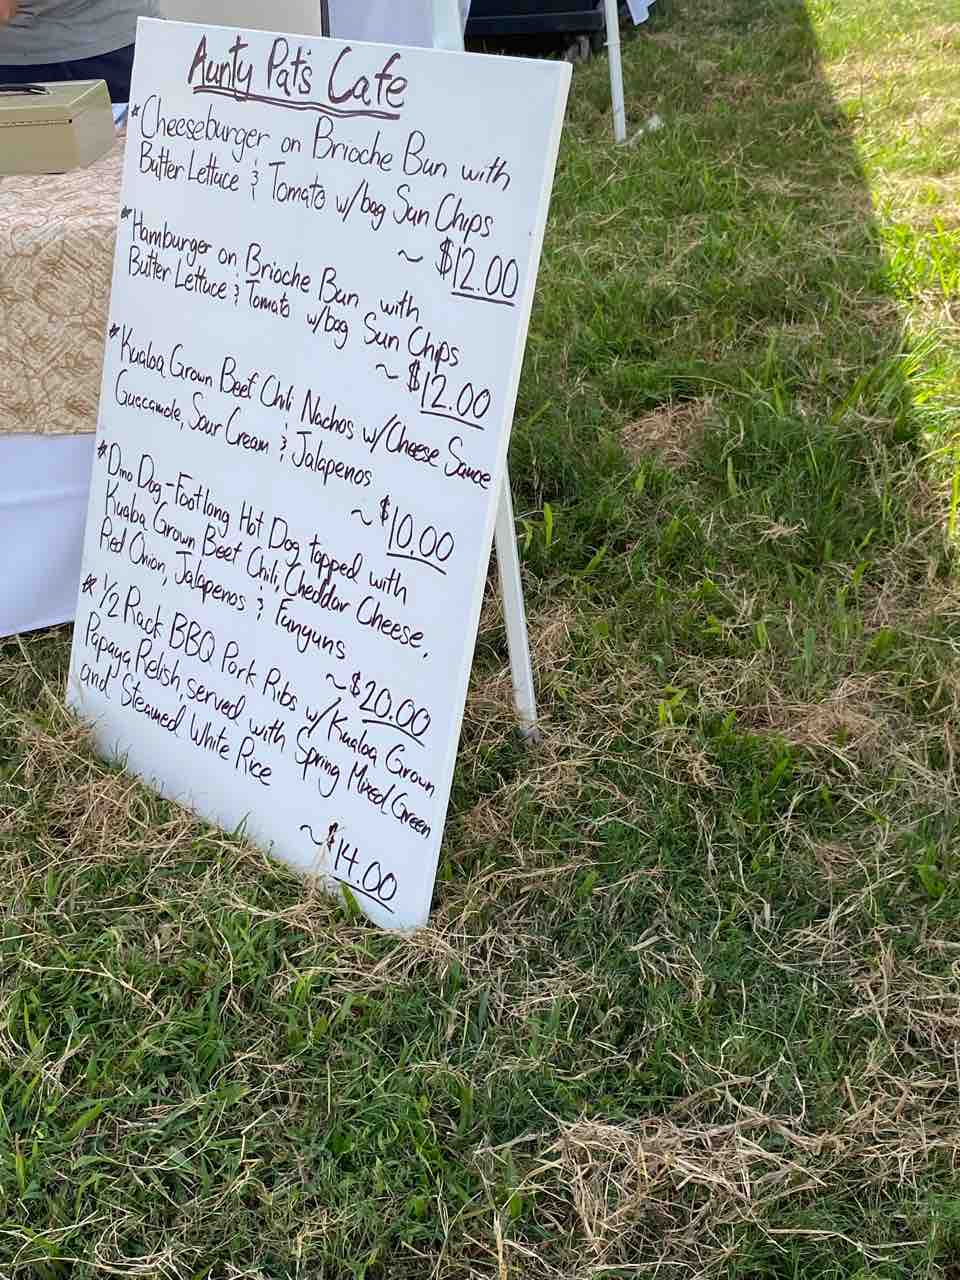 Aunty Pat's Cafe
* Cheeseburger on Brioche Bun with
Butter Lettuce & Tomato w/bag Sun Chips
~ $12.00
* Hamburger on Brioche Bun with
Butter Lettuce & Tomato w/bag Sun Chips
~ $12.00
* Kualoa Grown Beef Chili Nachos w/Cheese Sauce
Guacamole, Sour Cream & Jalapenos
~ $10.00
* Dino Dog - Footlong Hot Dog topped with
Kualoa Grown Beef Chili, Cheddar Cheese,
Red Onion, Jalapenos & Fanyuns
~ $20.00
* 1/2 Rack BBQ Pork Ribs w/Kualoa Grown
Papaya Relish, served with Spring Mixed Green
and Steamed White Rice
~ $14.00